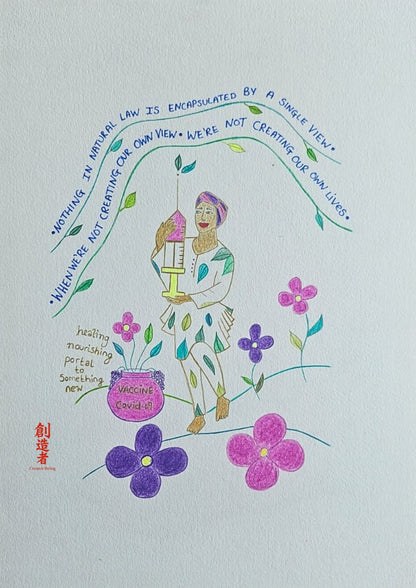 • NOTHING IN NATURAL LAW IS ENCAPSULATED BY A SINGLE VIEW •
• WHEN WE'RE NOT CREATING OUR OWN VIEW • WE'RE NOT CREATING OUR OWN LIVES •
healing
nourishing
portal
to
Something
new
VACCINE
Covid-19
創
造
者
Creative Being